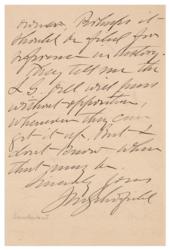 it
should be filed for
reference in
They tell me the
L.S. bill will pass
without opposition,
whenever they can
get it up. But I
don't know when
that may be.
Sincerely Yours
J M Schofield